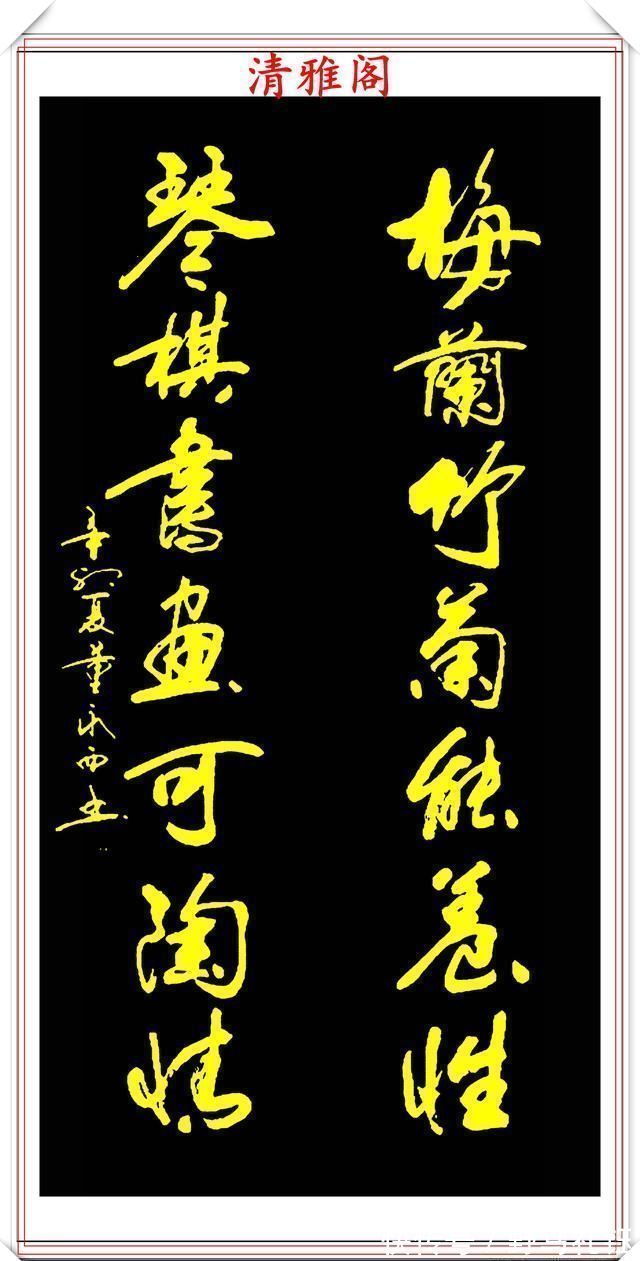 清雅阁
梅蘭竹菊能養性
琴棋書畫可陶情
辛卯夏董永西書